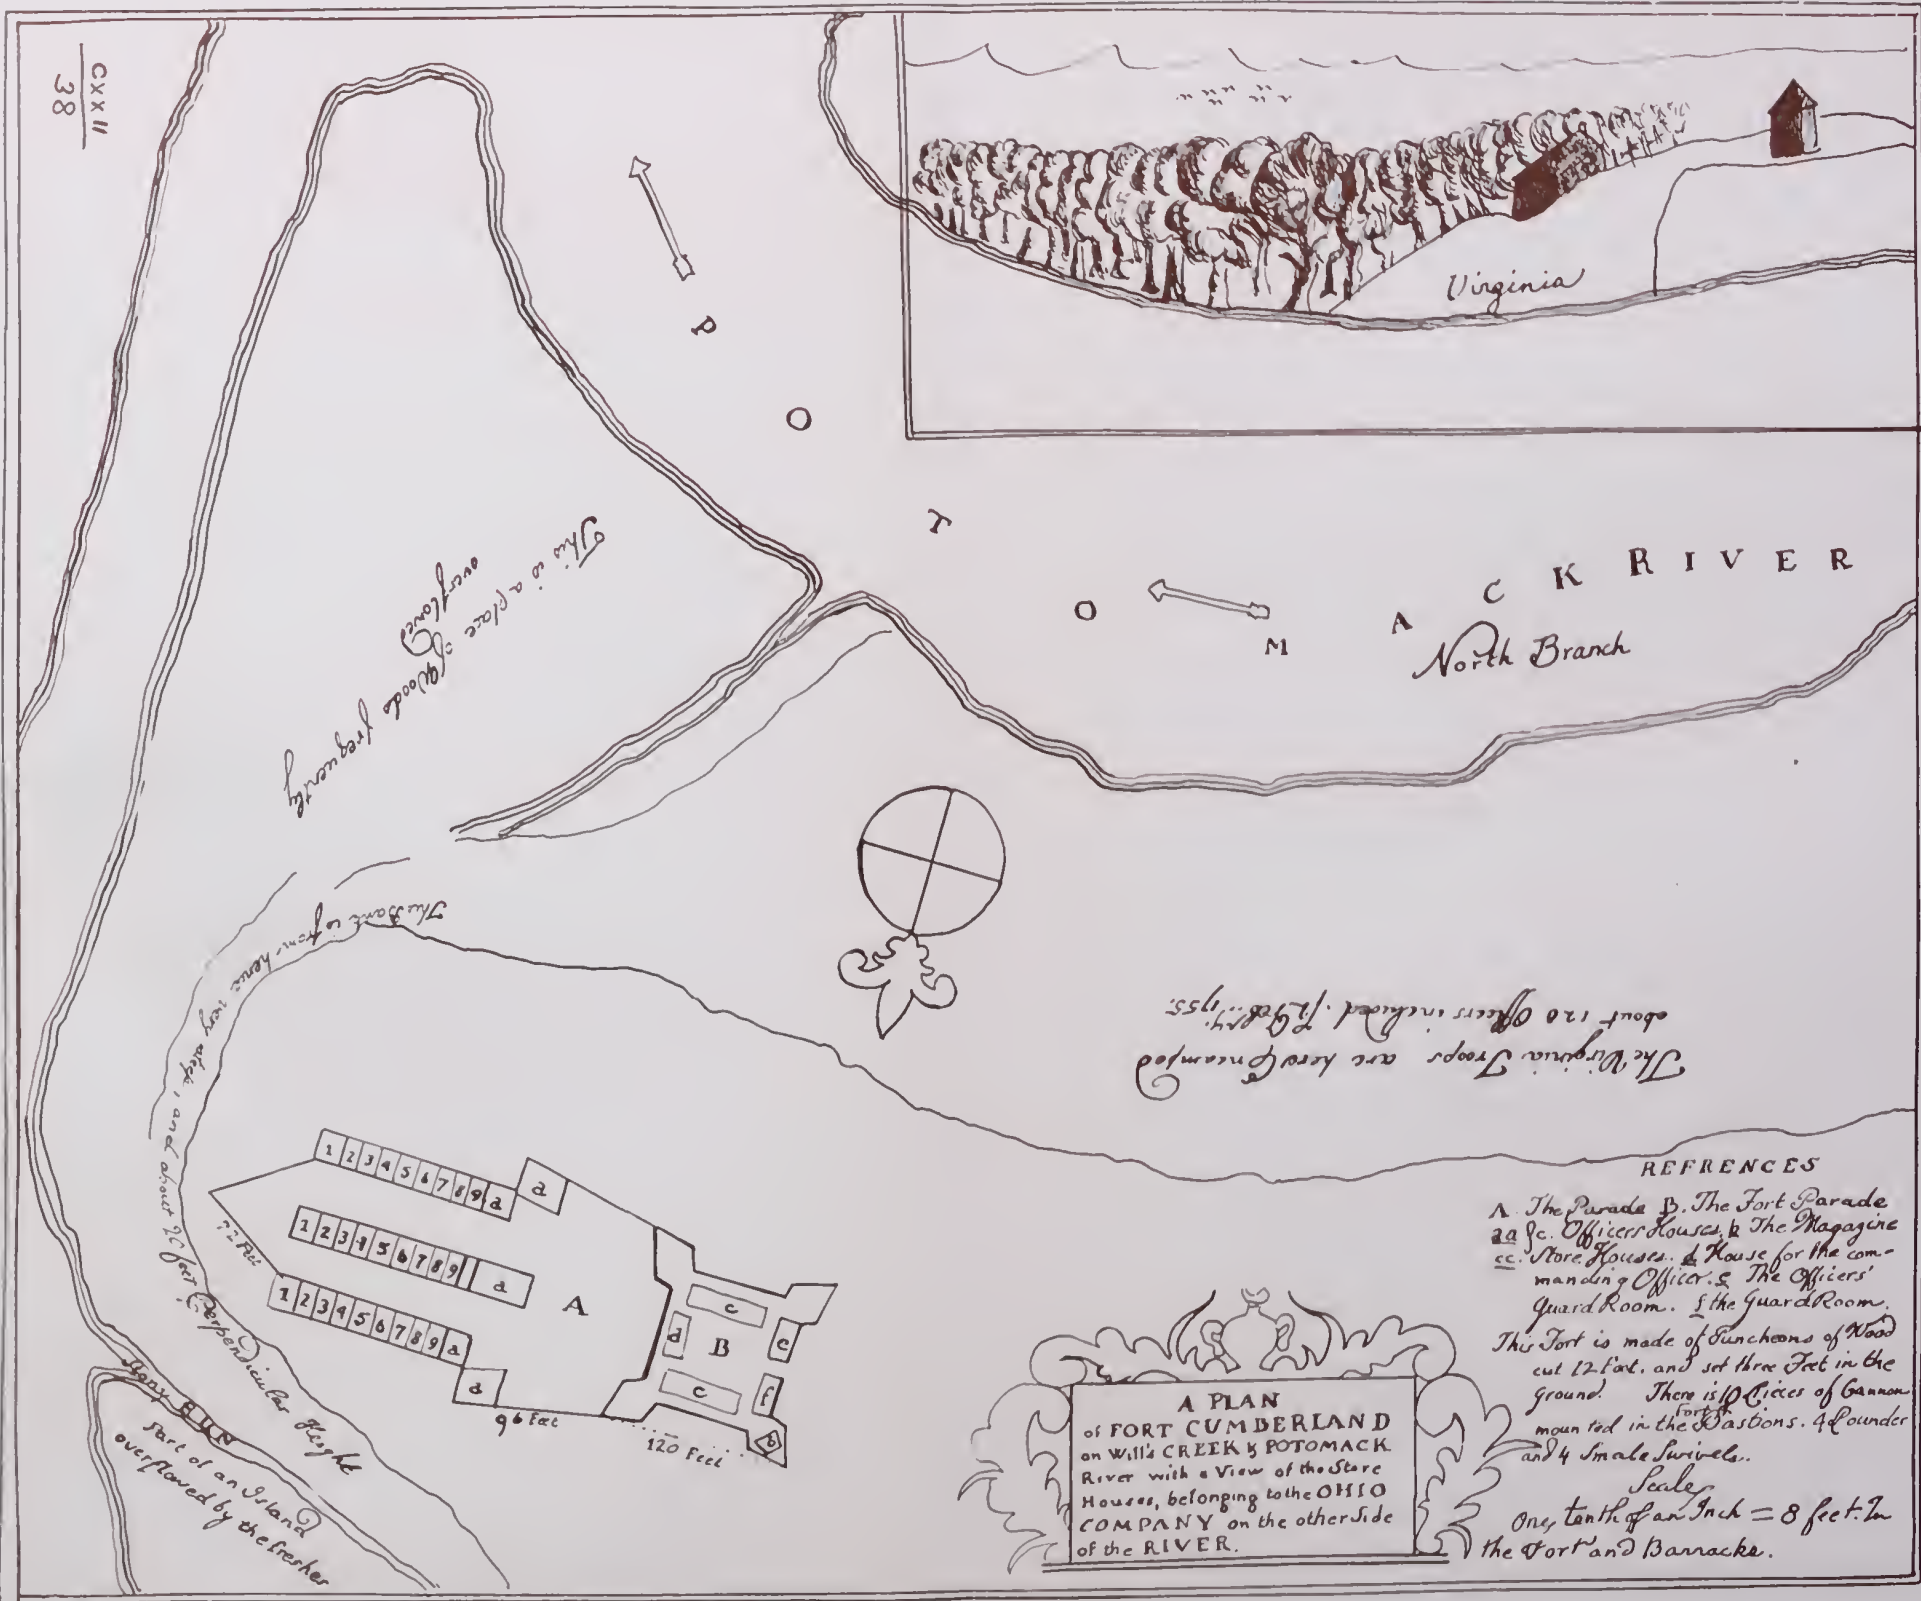 CXXII
38
Virginia
POTOMACK RIVER
North Branch
This is a place of Woods frequently
overflowed
The Bank is from hence very steep, and about 20 feet Perpendicular Height
The Virginia Troops are here Encamped
about 120 Officers included. 1755.
1 2 3 4 5 6 7 8 9 a
a
1 2 3 4 5 6 7 8 9 a
1 2 3 4 5 6 7 8 9 a
a
A
B
c
d
e
c
f
b
72 Feet
96 Feet
120 Feet
Stony RUN
Part of an Island
overflowed by the freshes
A PLAN
of FORT CUMBERLAND
on Will's CREEK & POTOMACK
River with a View of the Store
Houses, belonging to the OHIO
COMPANY on the other Side
of the RIVER.
REFRENCES
A. The Parade B. The Fort Parade
aa &c. Officers Houses. b The Magazine
cc. Store Houses. d House for the com-
manding Officer. e The Officers'
Guard Room. f the Guard Room.
This Fort is made of Puncheons of Wood
cut 12 foot. and set three Feet in the
ground. There is 10 Pieces of Cannon
mounted in the Fort &
Bastions. 4 Pounder
and 4 Small Swivels.
Scale
One tenth of an Inch = 8 feet. In
the Fort and Barracks.